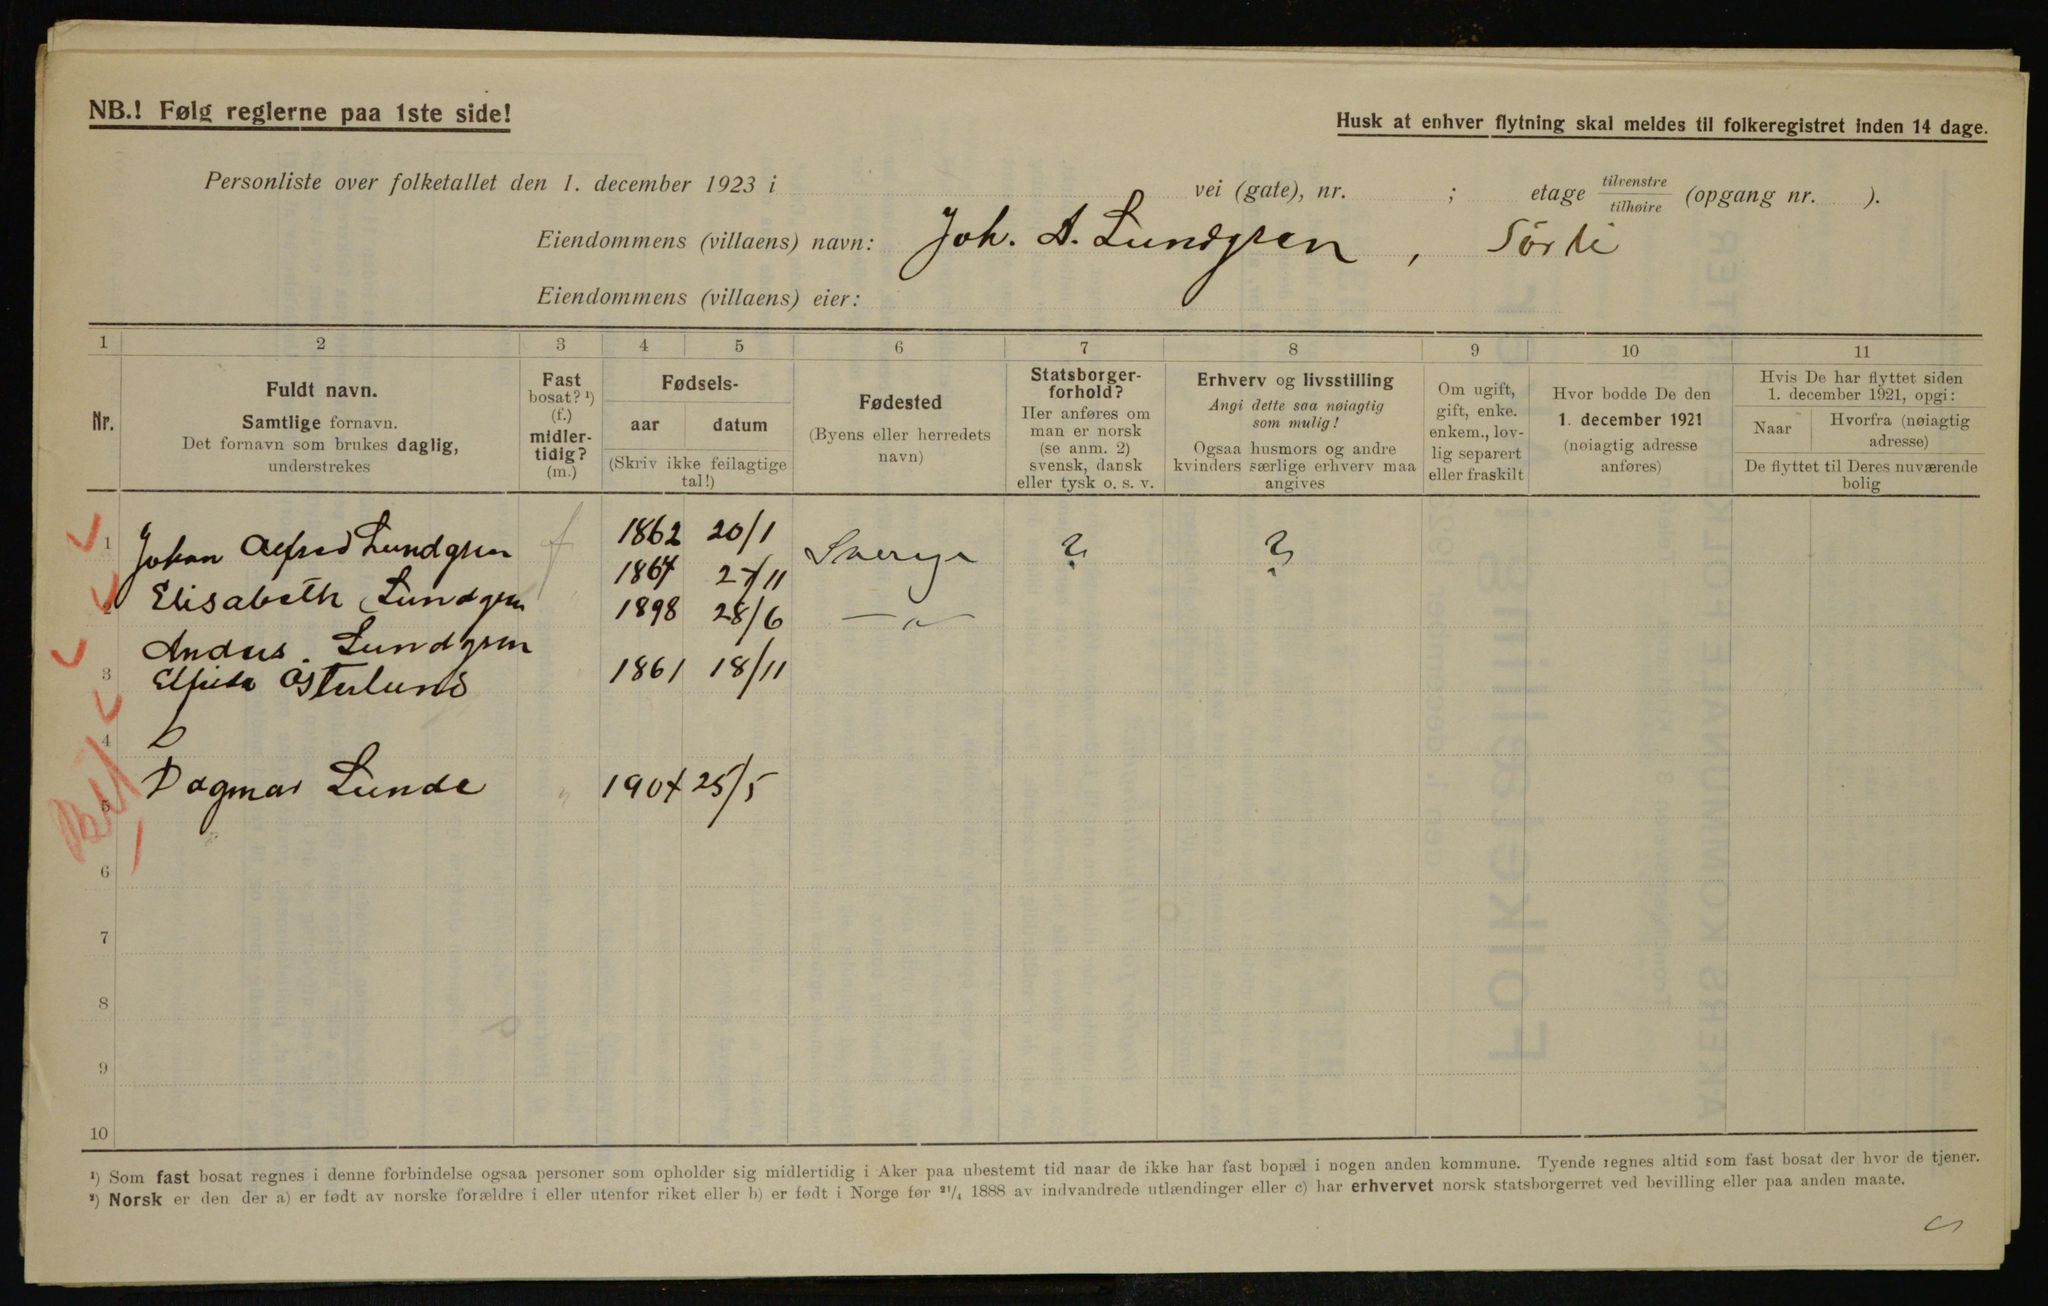 NB.! Følg reglerne paa 1ste side!
Husk at enhver flytning skal meldes til folkeregistret inden 14 dage.
Personliste over folketallet den 1. december 1923 i vei (gate), nr. ; etage tilvenstre / tilhøire (opgang nr. ).
Eiendommens (villaens) navn: Joh. A. Lundgren, Sörli
Eiendommens (villaens) eier:
1 2 3 4 5 6 7 8 9 10 11
Nr.
Fuldt navn.
Samtlige fornavn.
Det fornavn som brukes daglig,
understrekes
Fast
bosat? ¹)
(f.)
midler-
tidig?
(m.)
Fødsels-
aar datum
(Skriv ikke feilagtige
tal!)
Fødested
(Byens eller herredets
navn)
Statsborger-
forhold?
Her anføres om
man er norsk
(se anm. 2)
svensk, dansk
eller tysk o. s. v.
Erhverv og livsstilling
Angi dette saa nøiagtig
som mulig!
Ogsaa husmors og andre
kvinders særlige erhverv maa
angives
Om ugift,
gift, enke.
enkem., lov-
lig separert
eller fraskilt
Hvor bodde De den
1. december 1921
(nøiagtig adresse
anføres)
Hvis De har flyttet siden
1. december 1921, opgi:
Naar
Hvorfra (nøiagtig
adresse)
De flyttet til Deres nuværende
bolig
1 Johan Alfred Lundgren f 1862 20/1 Sverige ? ?
2 Elisabeth Lundgren " 1864 27/11
Anders Lundgren 1898 28/6 — " —
3 Elfrida Österlund " 1861 18/11
4
5 Dagmar Lunde " 1904 25/5
6
7
8
9
10
¹) Som fast bosat regnes i denne forbindelse ogsaa personer som opholder sig midlertidig i Aker paa ubestemt tid naar de ikke har fast bopæl i nogen anden kommune. Tyende regnes altid som fast bosat der hvor de tjener.
²) Norsk er den der a) er født av norske forældre i eller utenfor riket eller b) er født i Norge før ²¹/₄ 1888 av indvandrede utlændinger eller c) har erhvervet norsk statsborgerret ved bevilling eller paa anden maate.